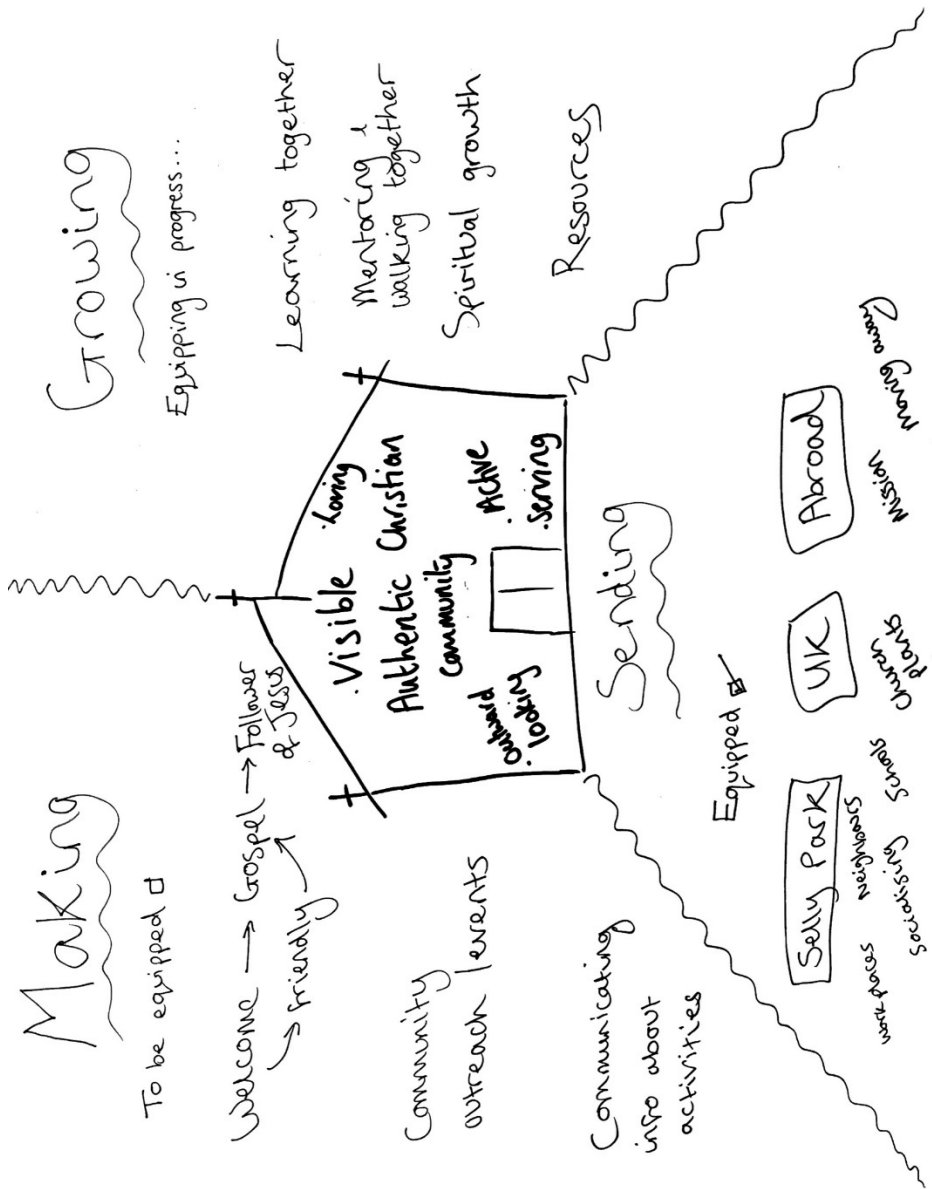 Making
To be equipped
Welcome → Gospel → Follower
of Jesus
→ friendly
Community
outreach / events
Communicating
info about
activities
Growing
Equipping in progress...
Learning together
Mentoring &
walking together
Spiritual growth
Resources
· Loving
· Visible
Authentic Christian
Community
· Active
· Serving
outward
· looking
Sending
Equipped
Selly Park
UK
Abroad
workplaces
Neighbours
Socialising
Schools
Church
plants
Mission
Moving away